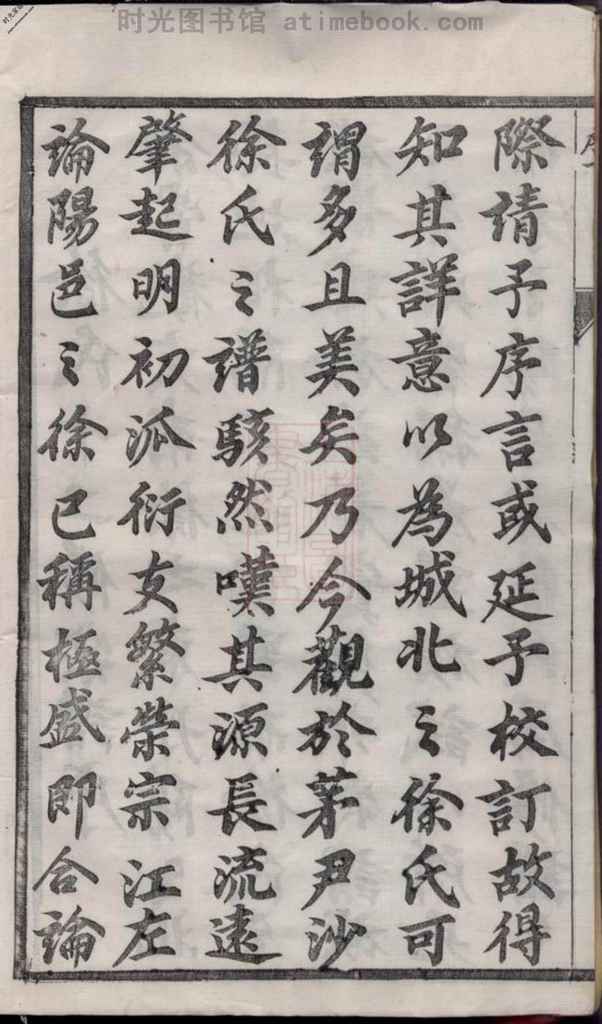 时光图书馆 atimebook.com
際請予序言或延予校訂故得
知其詳意以為城北之徐氏可
謂多且美矣乃今觀於茅尹沙
徐氏之譜駭然嘆其源長流遠
肇起明初派衍支繁榮宗江左
論陽邑之徐已稱極盛即合論